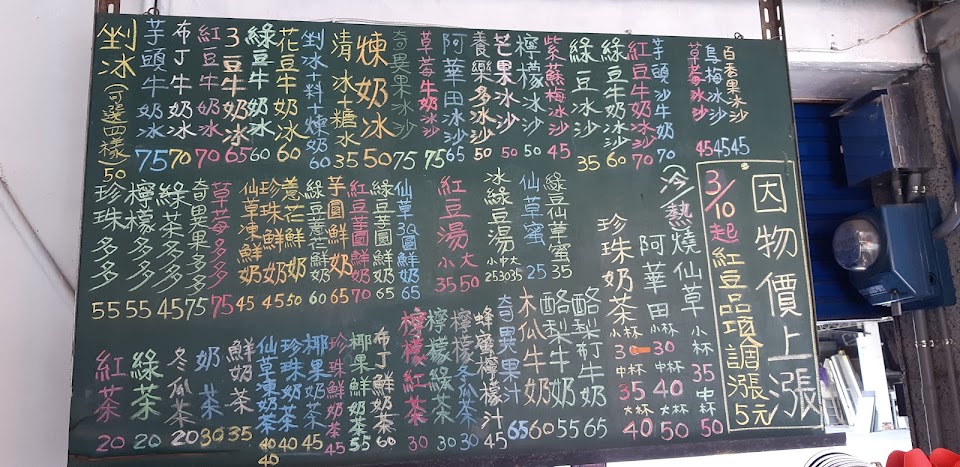 剉冰(可選四樣)50
芋頭牛奶冰75
布丁牛奶冰70
紅豆牛奶冰70
3豆牛奶冰65
綠豆牛奶冰60
花豆牛奶冰60
剉冰+料+煉奶60
清冰+糖水35
煉奶冰50
奇異果冰沙75
草莓牛奶冰沙75
阿華田冰沙65
養樂多冰沙50
芒果冰沙50
檸檬冰沙50
紫蘇梅冰沙45
綠豆冰沙35
綠豆牛奶冰沙60
紅豆牛奶冰沙70
芋頭沙牛奶70
草莓冰沙45
烏梅冰沙45
百香果冰沙45
珍珠多多55
檸檬多多55
綠茶多多45
奇異果多多75
草莓多多75
仙草凍鮮奶45
珍珠鮮奶45
薏芢鮮奶50
綠豆薏芢鮮奶60
芋圓鮮奶65
紅豆芋圓鮮奶70
綠豆芋圓鮮奶65
仙草3Q圓鮮奶65
紅豆湯 小35 大50
冰綠豆湯 小25 中30 大35
仙草蜜25
綠豆仙草蜜35
珍珠奶茶 小杯3 中杯35 大杯40
(冷熱)阿華田 小杯30 中杯40 大杯50
燒仙草 小杯35 中杯50
紅茶20
綠茶20
冬瓜茶20
奶茶30
鮮奶茶35
仙草凍奶茶40
珍珠奶茶40
椰果奶茶40
珍珠鮮奶茶45
椰果鮮奶茶55
布丁鮮奶茶60
檸檬紅茶30
檸檬綠茶30
檸檬冬瓜茶30
蜂蜜檸檬汁45
奇異果汁65
木瓜牛奶60
酪梨牛奶55
酪梨布丁牛奶65
因物價上漲
3/10起紅豆品項調漲5元